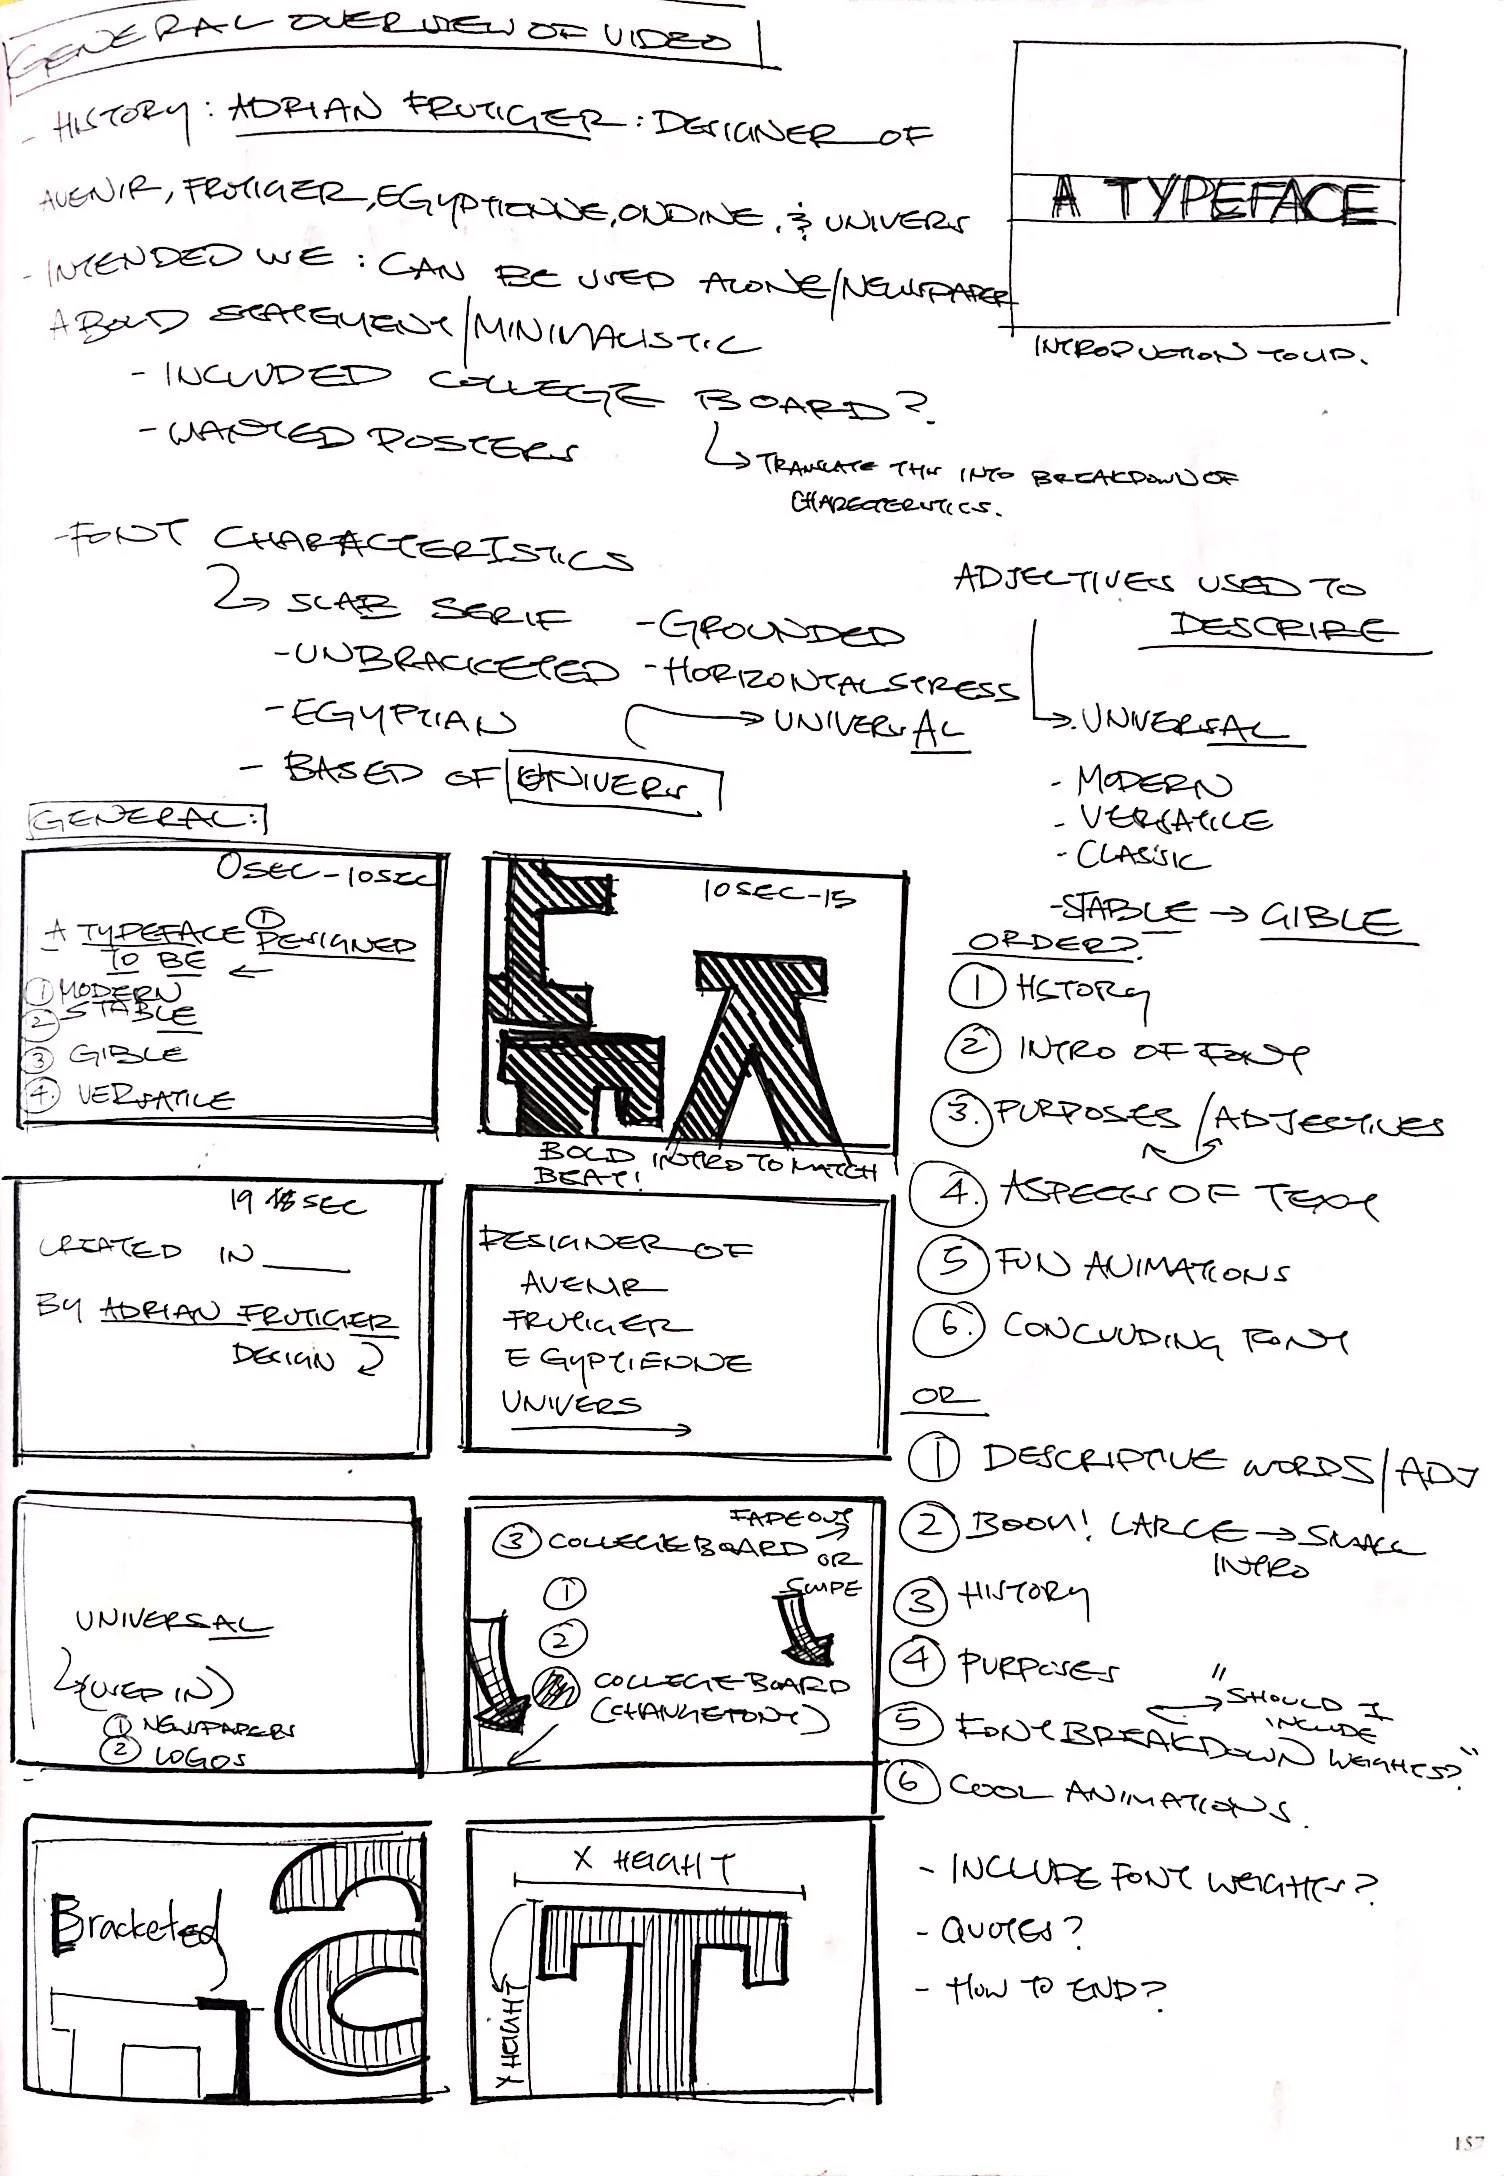 GENERAL OVERVIEW OF VIDEO
- HISTORY: ADRIAN FRUTIGER: DESIGNER OF
AVENIR, FRUTIGER, EGYPTIENNE, ONDINE, & UNIVERS
- INTENDED USE: CAN BE USED ALONE/NEWSPAPER
A BOLD STATEMENT/MINIMALISTIC
- INCLUDED COLLEGE BOARD?
- WANTED POSTERS
TRANSLATE THIS INTO BREAKDOWN OF
CHARECTERISTICS.
A TYPEFACE
INTRODUCTION TO
- FONT CHARACTERISTICS
SLAB SERIF
- UNBRACKETED
- EGYPTIAN
- BASED OF UNIVERS
- GROUNDED
- HORIZONTAL STRESS
UNIVERSAL
ADJECTIVES USED TO
DESCRIBE
UNIVERSAL
- MODERN
- VERSATILE
- CLASSIC
- STABLE → GIBLE
GENERAL:
0SEC-10SEC
A TYPEFACE ① DESIGNED
TO BE ←
① MODERN
② STABLE
③ GIBLE
④ VERSATILE
10SEC-15
BOLD INTRO TO MATCH
BEAT!
19 SEC
CREATED IN ____
BY ADRIAN FRUTIGER
DESIGN
DESIGNER OF
AVENIR
FRUTIGER
EGYPTIENNE
UNIVERS
UNIVERSAL
(USED IN)
① NEWSPAPERS
② LOGOS
FADEOUT
OR
SWIPE
③ COLLEGEBOARD
①
②
COLLEGEBOARD
(CHANGE FONT)
Bracketed
X HEIGHT
Y HEIGHT
ORDER?
① HSTORY
② INTRO OF FONT
③. PURPOSES / ADJECTIVES
④. ASPECTS OF TEXT
⑤ FUN ANIMATIONS
⑥. CONCLUDING FONT
OR
① DESCRIPTIVE WORDS/ADJ
② BOOM! LARGE → SMALL
INTRO
③ HISTORY
④ PURPOSES
⑤ FONT BREAKDOWN
"SHOULD I
INCLUDE
WEIGHTS?"
⑥ COOL ANIMATIONS.
- INCLUDE FONT WEIGHTS?
- QUOTES?
- HOW TO END?
157